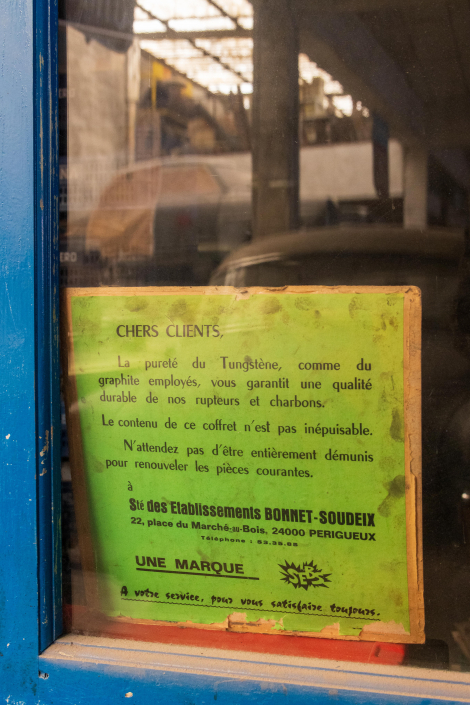 CHERS CLIENTS,
La pureté du Tungstène, comme du
graphite employés, vous garantit une qualité
durable de nos rupteurs et charbons.
Le contenu de ce coffret n'est pas inépuisable.
N'attendez pas d'être entièrement démunis
pour renouveler les pièces courantes.
à
Sté des Etablissements BONNET-SOUDEIX
22, place du Marché-au-Bois, 24000 PERIGUEUX
Téléphone : 53.36.88
UNE MARQUE
A votre service, pour vous satisfaire toujours.